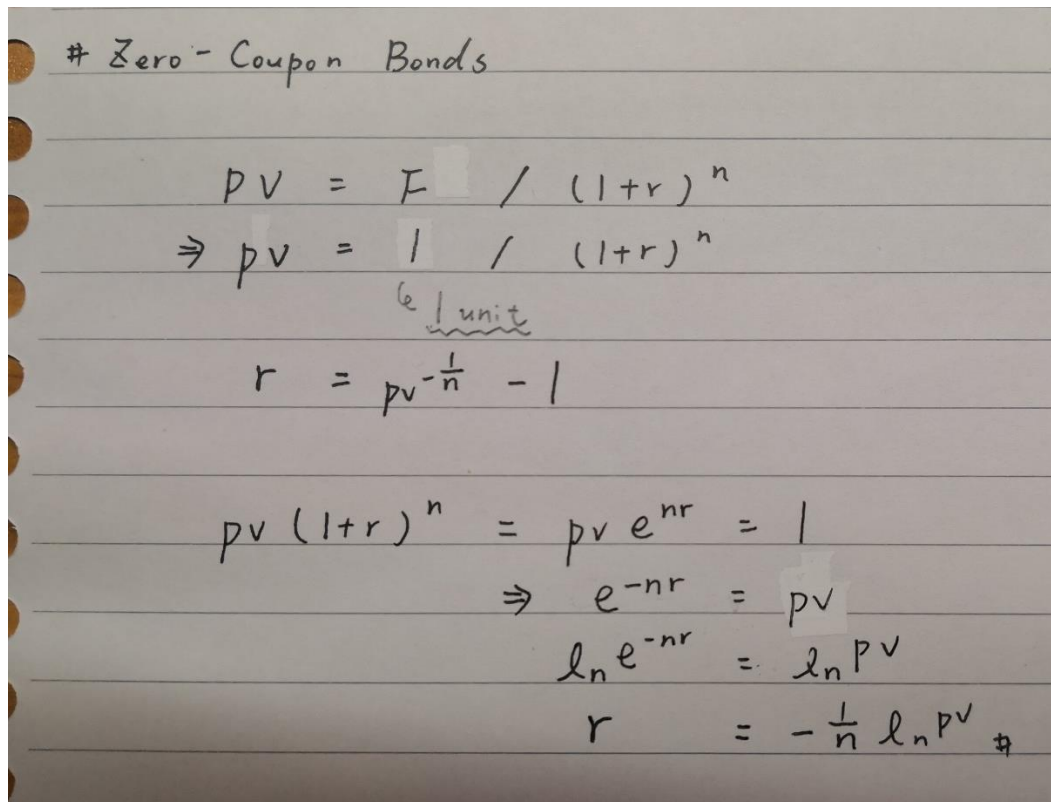 # Zero-Coupon Bonds
PV = F / (1+r)^n
⇒ pv = 1 / (1+r)^n
↳ 1 unit
r = pv^{-1/n} - 1
pv (1+r)^n = pv e^{nr} = 1
⇒ e^{-nr} = pv
ln e^{-nr} = ln pv
r = -1/n ln pv #